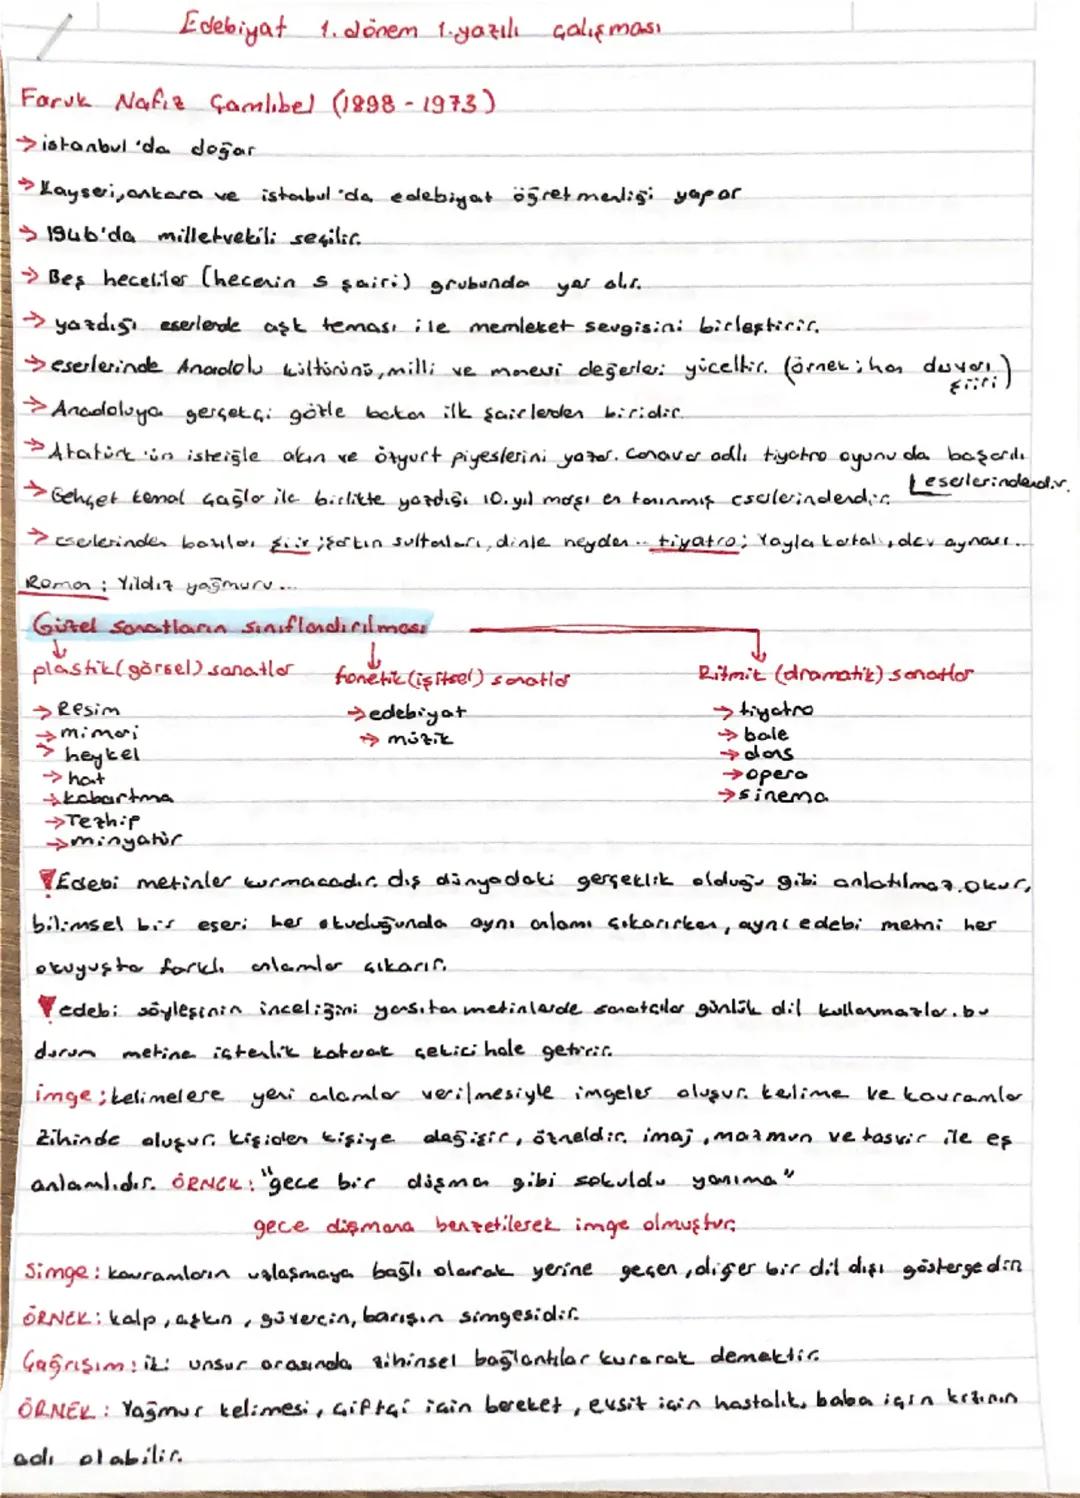 Edebiyat 1. dönem 1. yazılı çalışması
Faruk Nafiz Çamlıbel (1898 - 1973)
→ istanbul'da doğar
→ Kayseri, ankara ve istanbul'da edebiyat öğretmenliği yapar
→ 1946'da milletvekili seçilir.
→ Beş heceliler (hecenin 5 şairi) grubunda yer alır.
→ yazdığı eserlerde aşk teması ile memleket sevgisini birleştirir.
→ eserlerinde Anadolu kültürünü, milli ve manevi değerleri yüceltir. (örnek; han duvarı şiiri)
→ Anadoluya gerçekçi gözle bakan ilk şairlerden biridir.
→ Atatürk'ün isteiğle akın ve özyurt piyeslerini yazar. Canavar adlı tiyatro oyunu da başarılı eserlerindendir.
→ Behçet kemal çağlar ile birlikte yazdığı 10. yıl marşı en tanınmış eserlerindendir.
→ eserlerinden bazıları şiir; şarkın sultanları, dinle neyden .. tiyatro; Yayla kartalı, dev aynası ...
Roman; Yıldız yağmuru ...
Güzel sanatların sınıflandırılması
plastik (görsel) sanatlar fonetik (işitsel) sanatlar Ritmik (dramatik) sanatlar
→ Resim → edebiyat → tiyatro
→ mimari → müzik → bale
→ heykel → dans
→ hat → opera
→ kabartma → sinema
→ Tezhip
→ minyatür
Edebi metinler kurmacadır. dış dünyadaki gerçeklik olduğu gibi anlatılmaz. Okur,
bilimsel bir eseri her okuduğunda aynı anlamı çıkarırken, aynı edebi metni her
okuyuşta farklı anlamlar çıkarır.
edebi söyleşinin inceliğini yansıtan metinlerde sanatçılar günlük dil kullanmazlar. bu
durum metine içtenlik katarak çekici hale getirir.
imge; kelimelere yeni anlamlar verilmesiyle imgeler oluşur. kelime ve kavramlar
zihinde oluşur. kişiden kişiye değişir, özneldir. imaj, mazmun ve tasvir ile eş
anlamlıdır. ÖRNEK: "gece bir düşman gibi sokuldu yanıma"
gece düşmana benzetilerek imge olmuştur.
Simge: kavramların uzlaşmaya bağlı olarak yerine geçen, diğer bir dil dışı göstergedir
ÖRNEK: kalp, aşkın, güvercin, barışın simgesidir.
Çağrışım: iki unsur arasında zihinsel bağlantılar kurarak demektir.
ÖRNEK: Yağmur kelimesi, çiftçi için bereket, evsiz için hastalık, baba için kızının
adı olabilir.